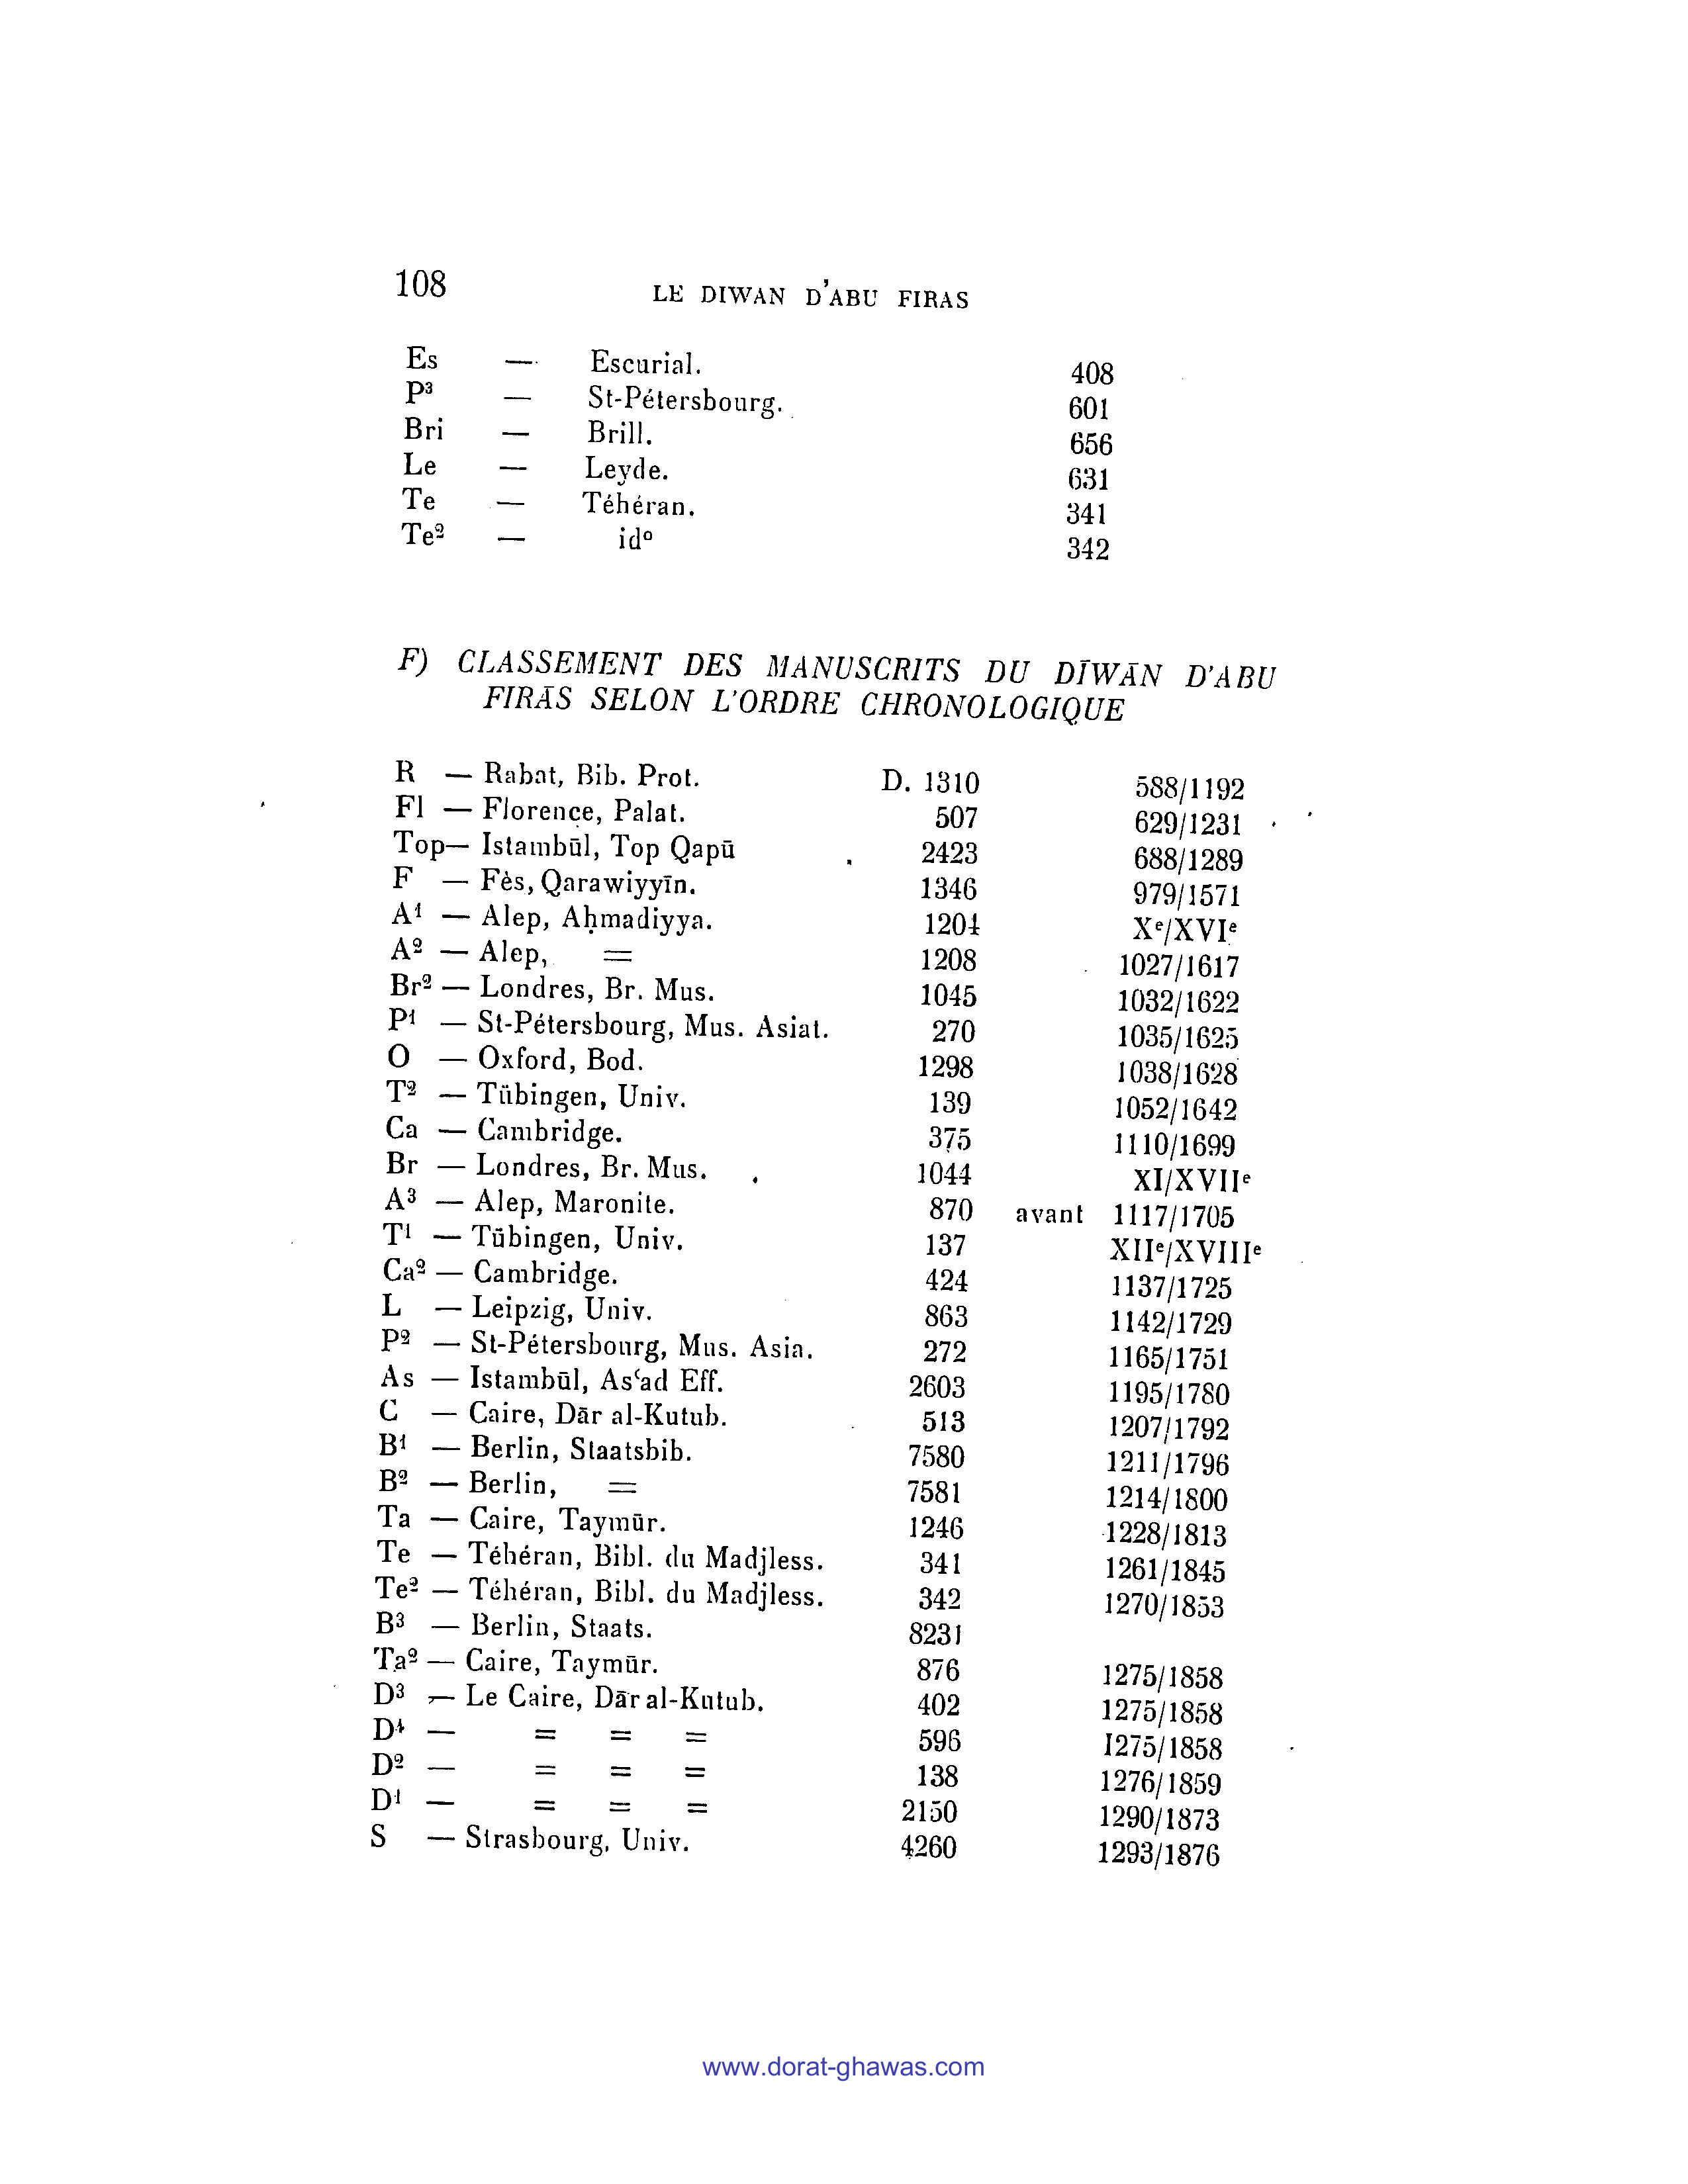 108 LE DIWAN D'ABU FIRAS
Es — Escurial. 408
P³ — St-Pétersbourg. 601
Bri — Brill. 656
Le — Leyde. 631
Te — Téhéran. 341
Te² — idº 342
F) CLASSEMENT DES MANUSCRITS DU DĪWĀN D'ABU
FIRĀS SELON L'ORDRE CHRONOLOGIQUE
R — Rabat, Bib. Prot. D. 1310 588/1192
Fl — Florence, Palat. 507 629/1231
Top— Istambūl, Top Qapū 2423 688/1289
F — Fès, Qarawiyyīn. 1346 979/1571
A¹ — Alep, Aḥmadiyya. 1204 Xᵉ/XVIᵉ
A² — Alep, = 1208 1027/1617
Br² — Londres, Br. Mus. 1045 1032/1622
P¹ — St-Pétersbourg, Mus. Asiat. 270 1035/1625
O — Oxford, Bod. 1298 1038/1628
T² — Tübingen, Univ. 139 1052/1642
Ca — Cambridge. 375 1110/1699
Br — Londres, Br. Mus. 1044 XI/XVIIᵉ
A³ — Alep, Maronite. 870 avant 1117/1705
T¹ — Tübingen, Univ. 137 XIIᵉ/XVIIIᵉ
Ca² — Cambridge. 424 1137/1725
L — Leipzig, Univ. 863 1142/1729
P² — St-Pétersbourg, Mus. Asia. 272 1165/1751
As — Istambūl, Asʿad Eff. 2603 1195/1780
C — Caire, Dār al-Kutub. 513 1207/1792
B¹ — Berlin, Staatsbib. 7580 1211/1796
B² — Berlin, = 7581 1214/1800
Ta — Caire, Taymūr. 1246 1228/1813
Te — Téhéran, Bibl. du Madjless. 341 1261/1845
Te² — Téhéran, Bibl. du Madjless. 342 1270/1853
B³ — Berlin, Staats. 8231
Ta² — Caire, Taymūr. 876 1275/1858
D³ — Le Caire, Dār al-Kutub. 402 1275/1858
D⁴ — = = = 596 1275/1858
D² — = = = 138 1276/1859
D¹ — = = = 2150 1290/1873
S — Strasbourg, Univ. 4260 1293/1876
www.dorat-ghawas.com